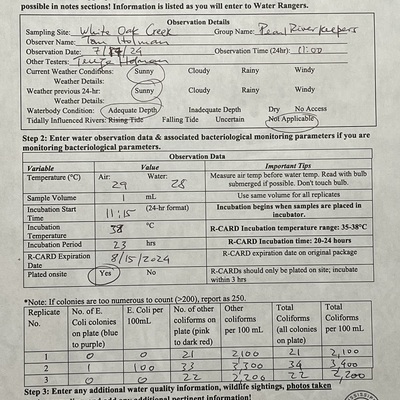 possible in notes sections! Information is listed as you will enter to Water Rangers.
Observation Details
Sampling Site: White Oak Creek Group Name: Pearl Riverkeepers
Observer Name: Tom Holman
Observation Date: 7/17/24 Observation Time (24hr): 11:00
Other Testers: Holman
Current Weather Conditions: Sunny Cloudy Rainy Windy
Weather Details:
Weather previous 24-hr: Sunny Cloudy Rainy Windy
Weather Details:
Waterbody Condition: Adequate Depth Inadequate Depth Dry No Access
Tidally Influenced Rivers: Rising Tide Falling Tide Uncertain Not Applicable
Step 2: Enter water observation data & associated bacteriological monitoring parameters if you are
monitoring bacteriological parameters.
Observation Data
Variable Value Important Tips
Temperature (°C) Air: 29 Water: 28 Measure air temp before water temp. Read with bulb
submerged if possible. Don't touch bulb.
Sample Volume 1 mL Use same volume for all replicates
Incubation Start Time 11:15 (24-hr format) Incubation begins when samples are placed in
incubator.
Incubation Temperature 38 °C R-CARD Incubation temperature range: 35-38°C
Incubation Period 23 hrs R-CARD Incubation time: 20-24 hours
R-CARD Expiration Date 8/15/2024 R-CARD expiration date on original package
Plated onsite Yes No R-CARDs should only be plated on site; incubate
within 3 hrs
*Note: If colonies are too numerous to count (>200), report as 250.
Replicate No. No. of E. Coli colonies on plate (blue to purple) E. Coli per 100mL No. of other coliforms on plate (pink to dark red) Other coliforms per 100 mL Total Coliforms (all colonies on plate) Total Coliforms per 100 mL
1 0 0 21 2,100 21 2,100
2 1 100 33 3,300 34 3,400
3 0 0 22 2,200 22 2,200
Step 3: Enter any additional water quality information, wildlife sightings, photos taken